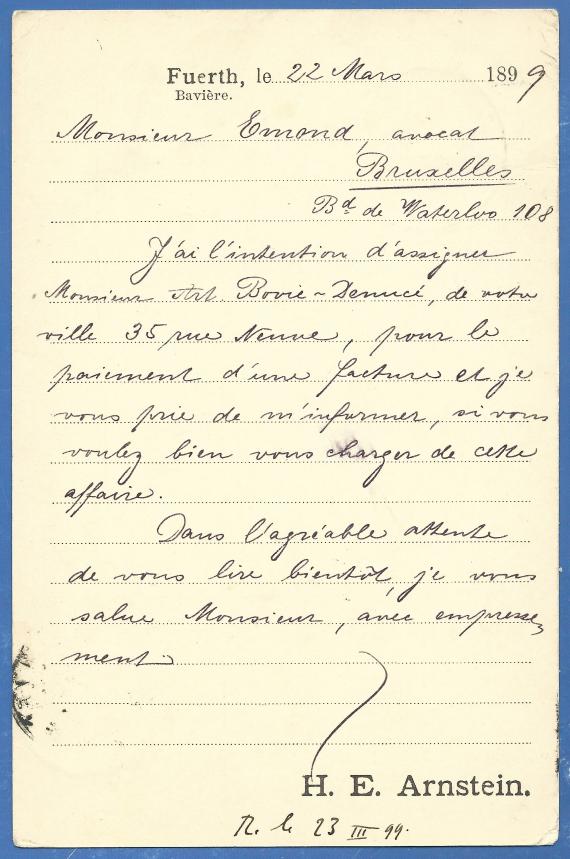 Fuerth, le 22 Mars 1899
Bavière.
Monsieur Emond, avocat
Bruxelles
Bd. de Waterloo 108
J'ai l'intention d'assigner
Monsieur Art. Bovie-Denucé, de votre
ville 35 rue Neuve, pour le
paiement d'une facture et je
vous prie de m'informer, si vous
voulez bien vous charger de cette
affaire.
Dans l'agréable attente
de vous lire bientôt, je vous
salue Monsieur, avec empresse-
ment
H. E. Arnstein.
R. le 23 III 99.